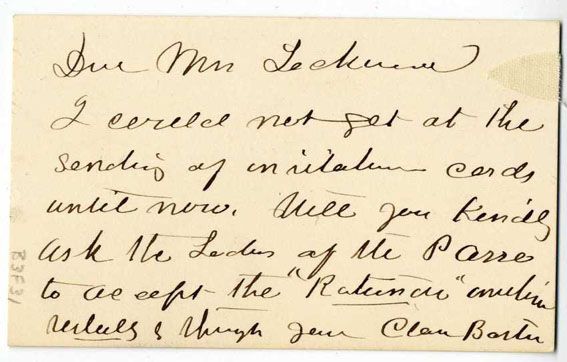 Dear Mrs Lockwood
I could not get at the
sending of invitation cards
until now. Will you kindly
ask the Ladies of the Press
to accept the "Rotunda" invitation
verbally & through you Clara Barton
B3F31